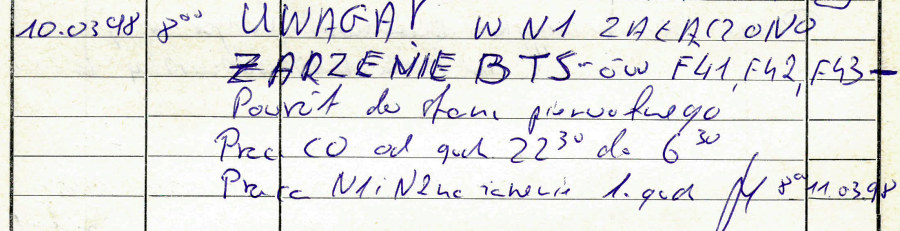 10.03.98 8⁰⁰ UWAGA! W N1 ZAŁĄCZONO
ZARZENIE BTS-ów F41, F42, F43-
Powrót do stanu pierwotnego
Praca CO od godz 22³⁰ do 6³⁰
Praca N1 i N2 na 1. godz 8⁰⁰ 11.03.98